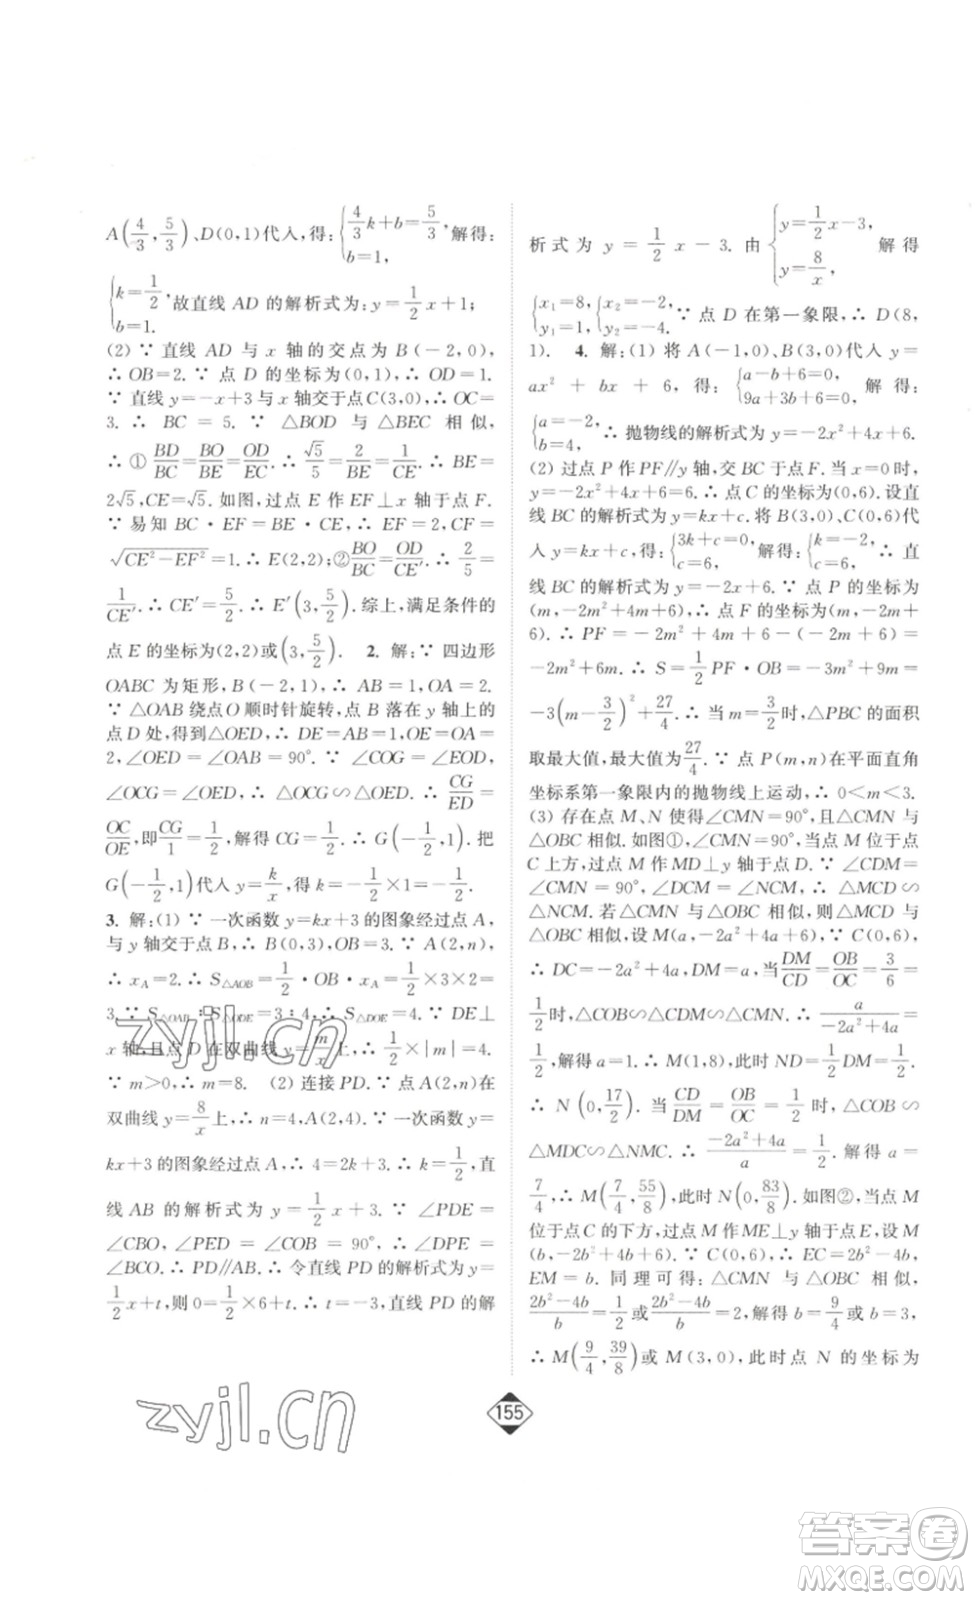 A(4/3, 5/3)、D(0,1)代入,得:{4/3k+b=5/3, b=1, 解得:
{k=1/2, b=1. 故直线 AD 的解析式为:y=1/2x+1;
(2) ∵ 直线 AD 与 x 轴的交点为 B(-2,0),
∴ OB=2. ∵ 点 D 的坐标为(0,1),∴ OD=1.
∵ 直线 y=-x+3 与 x 轴交于点 C(3,0),∴ OC=
3. ∴ BC = 5. ∵ △BOD 与 △BEC 相似,
∴ ① BD/BC=BO/BE=OD/EC. ∴ √5/5=2/BE=1/CE. ∴ BE=
2√5,CE=√5. 如图,过点 E 作 EF⊥x 轴于点 F.
∵ 易知 BC·EF=BE·CE,∴ EF=2,CF=
√(CE²-EF²)=1. ∴ E(2,2);②BO/BC=OD/CE′. ∴ 2/5=
1/CE′. ∴ CE′=5/2. ∴ E′(3,5/2). 综上,满足条件的
点 E 的坐标为(2,2)或(3,5/2). 2. 解:∵ 四边形
OABC 为矩形,B(-2,1),∴ AB=1,OA=2.
∵ △OAB 绕点 O 顺时针旋转,点 B 落在 y 轴上的
点 D 处,得到△OED,∴ DE=AB=1,OE=OA=
2,∠OED=∠OAB=90°. ∵ ∠COG=∠EOD,
∠OCG=∠OED,∴ △OCG∽△OED. ∴ CG/ED=
OC/OE,即CG/1=1/2,解得 CG=1/2. ∴ G(-1/2,1). 把
G(-1/2,1)代入 y=k/x,得 k=-1/2×1=-1/2.
3. 解:(1) ∵ 一次函数 y=kx+3 的图象经过点 A,
与 y 轴交于点 B,∴ B(0,3),OB=3. ∵ A(2,n),
∴ x_A=2. ∴ S△AOB=1/2·OB·x_A=1/2×3×2=
3. ∵ S△OAB:S△ODE=3:4,∴ S△DOE=4. ∵ DE⊥
x 轴,且点 D 在双曲线 y=m/x 上,∴ 1/2×|m|=4.
∵ m>0,∴ m=8. (2) 连接 PD. ∵ 点 A(2,n)在
双曲线 y=8/x上,∴ n=4,A(2,4). ∵ 一次函数 y=
kx+3 的图象经过点 A,∴ 4=2k+3. ∴ k=1/2,直
线 AB 的解析式为 y=1/2x+3. ∵ ∠PDE=
∠CBO,∠PED = ∠COB = 90°,∴ ∠DPE =
∠BCO. ∴ PD∥AB. ∴ 令直线 PD 的解析式为 y=
1/2x+t,则 0=1/2×6+t. ∴ t=-3,直线 PD 的解
析式为 y=1/2x-3. 由{y=1/2x-3, y=8/x, 解得
{x₁=8, y₁=1, {x₂=-2, y₂=-4. ∵ 点 D 在第一象限,∴ D(8,
1). 4. 解:(1) 将 A(-1,0)、B(3,0)代入 y=
ax² + bx + 6,得:{a-b+6=0, 9a+3b+6=0, 解得:
{a=-2, b=4, ∴ 抛物线的解析式为 y=-2x²+4x+6.
(2) 过点 P 作 PF∥y 轴,交 BC 于点 F. 当 x=0 时,
y=-2x²+4x+6=6. ∴ 点 C 的坐标为(0,6). 设直
线 BC 的解析式为 y=kx+c. 将 B(3,0)、C(0,6)代
入 y=kx+c,得:{3k+c=0, c=6, 解得:{k=-2, c=6, ∴ 直
线 BC 的解析式为 y=-2x+6. ∵ 点 P 的坐标为
(m,-2m²+4m+6),∴ 点 F 的坐标为(m,-2m+
6). ∴ PF = -2m² + 4m + 6 - (-2m + 6) =
-2m²+6m. ∴ S=1/2PF·OB=-3m²+9m=
-3(m-3/2)²+27/4. ∴ 当 m=3/2时,△PBC 的面积
取最大值,最大值为27/4. ∵ 点 P(m,n)在平面直角
坐标系第一象限内的抛物线上运动,∴ 0<m<3.
(3) 存在点 M、N 使得∠CMN=90°,且△CMN 与
△OBC 相似. 如图①,∠CMN=90°,当点 M 位于点
C 上方,过点 M 作 MD⊥y 轴于点 D. ∵ ∠CDM=
∠CMN = 90°,∠DCM=∠NCM,∴ △MCD∽
△NCM. 若△CMN 与△OBC 相似,则△MCD 与
△OBC 相似,设 M(a,-2a²+4a+6),∵ C(0,6),
∴ DC=-2a²+4a,DM=a,当DM/CD=OB/OC=3/6=
1/2时,△COB∽△CDM∽△CMN. ∴ a/(-2a²+4a)=
1/2,解得 a=1. ∴ M(1,8),此时 ND=1/2DM=1/2.
∴ N(0,17/2). 当 CD/DM=OB/OC=1/2 时,△COB∽
△MDC∽△NMC. ∴ (-2a²+4a)/a=1/2. 解得 a=
7/4,∴ M(7/4,55/8),此时 N(0,83/8). 如图②,当点 M
位于点 C 的下方,过点 M 作 ME⊥y 轴于点 E,设 M
(b,-2b²+4b+6). ∵ C(0,6),∴ EC=2b²-4b,
EM = b. 同理可得:△CMN 与△OBC 相似,
(2b²-4b)/b=1/2或(2b²-4b)/b=2,解得 b=9/4或 b=3,
∴ M(9/4,39/8)或 M(3,0),此时点 N 的坐标为
155
zyjl.cn
zyjl.cn
答案圈
MXQE.COM